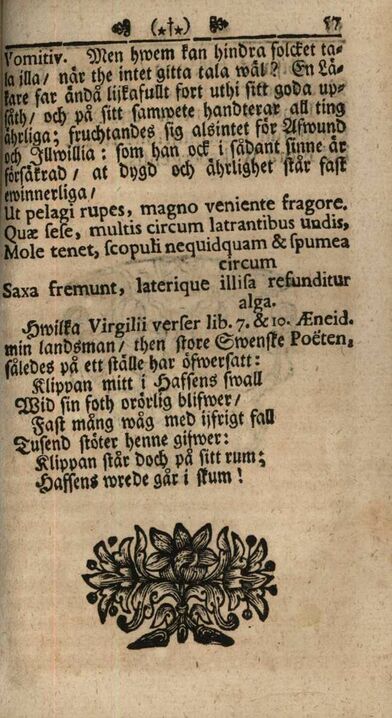 (⋆†⋆) 57
Vomitiv. Men hwem kan hindra folcket ta-
la illa/ när the intet gitta tala wäl? En Lä-
kare far ändå lijkafullt fort uthi sitt goda up-
såth/ och på sitt samwete handterar all ting
ährliga; fruchtandes sig alsintet för Afwund
och Illwillia: som han ock i sådant sinne är
försäkrad/ at dygd och ährlighet står fast
ewinnerliga/
Ut pelagi rupes, magno veniente fragore.
Quæ sese, multis circum latrantibus undis,
Mole tenet, scopuli nequidquam & spumea
circum
Saxa fremunt, laterique illisa refunditur
alga.
Hwilka Virgilii verser lib. 7. & 10. Æneid.
min landsman/ then store Swenske Poëten,
således på ett ställe har öfwersatt:
Klippan mitt i Hafsens swall
Wid sin foth orörlig blifwer/
Fast mång wåg med ijfrigt fall
Tusend stöter henne gifwer:
Klippan står doch på sitt rum;
Hafsens wrede går i skum!